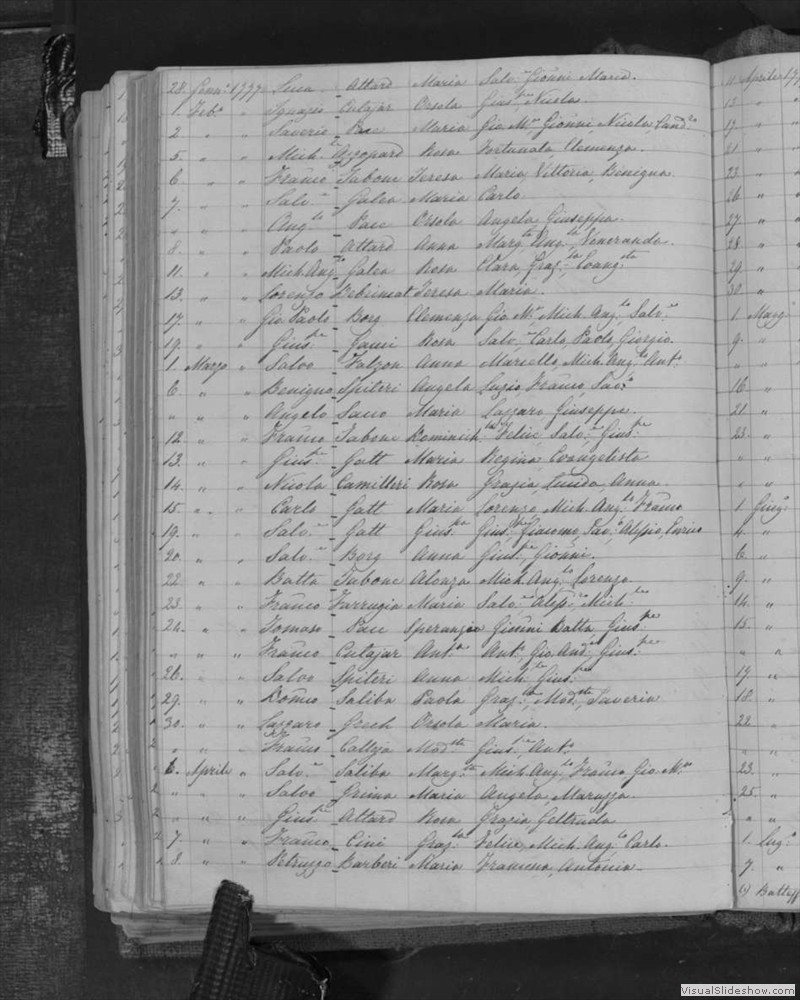 28. Genn.o 1777 Luca Attard Maria Salv.re Gionni Maria.
1. Feb.o " Ignazio Cutajar Orsola Gius.pe Nicolas.
2 " " Saverio Pace Maria Gio M.a Gionni, Nicola Cand.a
5. " " Mich.le Azzopard Rosa Fortunata, Clemenza.
6 " " Franco Tabone Teresa Maria, Vittoria, Benigna
7. " " Salv.re Galea Maria Carlo
" " " Ang.lo Pace Orsola Angela, Giuseppa.
8. " " Paolo Attard Anna Marg.ta Ang.la Veneranda.
11. " " Mich.Ang.lo Galea Rosa Clara, Graz.la Evang.sta
13. " " Lorenzo Debrincat Teresa Maria.
17. " " Gio Paolo Borg Clemenza Gio M.a Mich. Ang.lo Salv.re
19. " " Gius.pe Gauci Rosa Salv.re Carlo, Paolo, Giorgio.
1. Marzo " Salvo Falzon Anna Mariello, Mich. Ang.lo Ant.o
6. " " Benigno Spiteri Angela Franco,
" " " Angelo Sacco Maria Lazzaro, Giuseppe.
12 " " Franco Tabone Dominich.la Felic Salv.re Gius.pe
13. " " Gius.pe Gatt Maria Regina, Evangelista
14. " " Nicola Camilleri Rosa Grazia, Lucida, Anna.
15 " " Carlo Gatt Maria Lorenzo, Mich. Ang.lo Franco
19. " " Salv.re Gatt Gius.pa Gius.pe Giacomo, Alessio, Enrico
20. " " Salv.re Borg Anna Gius.pe Gionni.
22 " " Batta Tabone Alonza Mich. Ang.lo Lorenzo
23. " " Franco Farrugia Maria Salv.re Aless.o Mich.le
24. " " Tomaso Pace Speranza Gionni Batta Gius.pe
" " " Franco Cutajar Ant.a Ant.o Gio And.a Gius.pe
26. " " Salvo Spiteri Anna Mich.le Gius.pe
29. " " Domco Saliba Paola Graz.la Mod.sta Saveria
30. " " Lazzaro Grech Orsola Maria.
" " " Franco Calleja Mod.sta Gius.pe Ant.o
6. Aprile " Salv.re Saliba Marg.ta Mich. Ang.lo Franco Gio. M.a
" " " Salvo Grima Maria Angela, Maruzza.
" " " Gius.pe Attard Rosa Grazia Geltruda
7. " " Franco Cini Graz.la Felice, Mich. Ang.lo Carlo.
8. " " Petruzzo Barberi Maria Antonia
11 Aprile 17
12. "
17. "
21. "
22. "
26. "
27. "
28 "
29. "
30. "
1 Magg.
9. "
" "
16. "
21. "
23. "
" "
" "
1. Giug.o
4. "
6. "
9. "
14. "
15. "
" "
17. "
18. "
22 "
" "
23. "
25. "
" "
1. Lug.o
7. "
VisualSlideshow.com